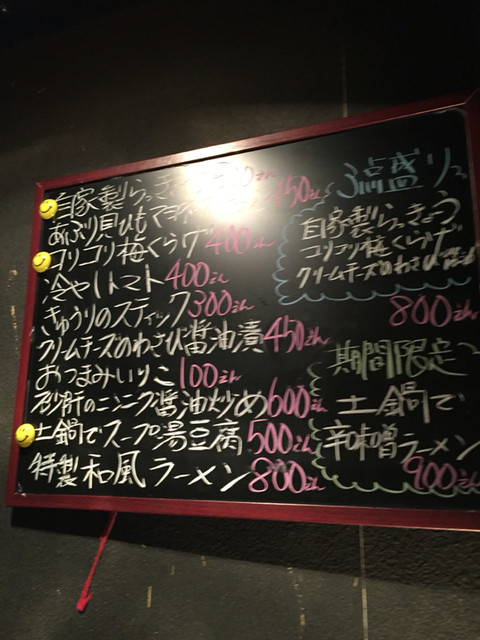 自家製らっきょう
あぶり貝ひも マヨ 450えん
コリコリ梅くらげ 400えん
冷やしトマト 400えん
きゅうりのスティック 300えん
クリームチーズのわさび醤油漬 450えん
おつまみいりこ 100えん
砂肝のニンニク醤油炒め 600えん
土鍋でスープ湯豆腐 500えん
特製 和風ラーメン 800えん
3点盛り
自家製らっきょう
コリコリ梅くらげ
クリームチーズのわさび
800えん
期間限定
土鍋で
辛味噌ラーメン
900えん